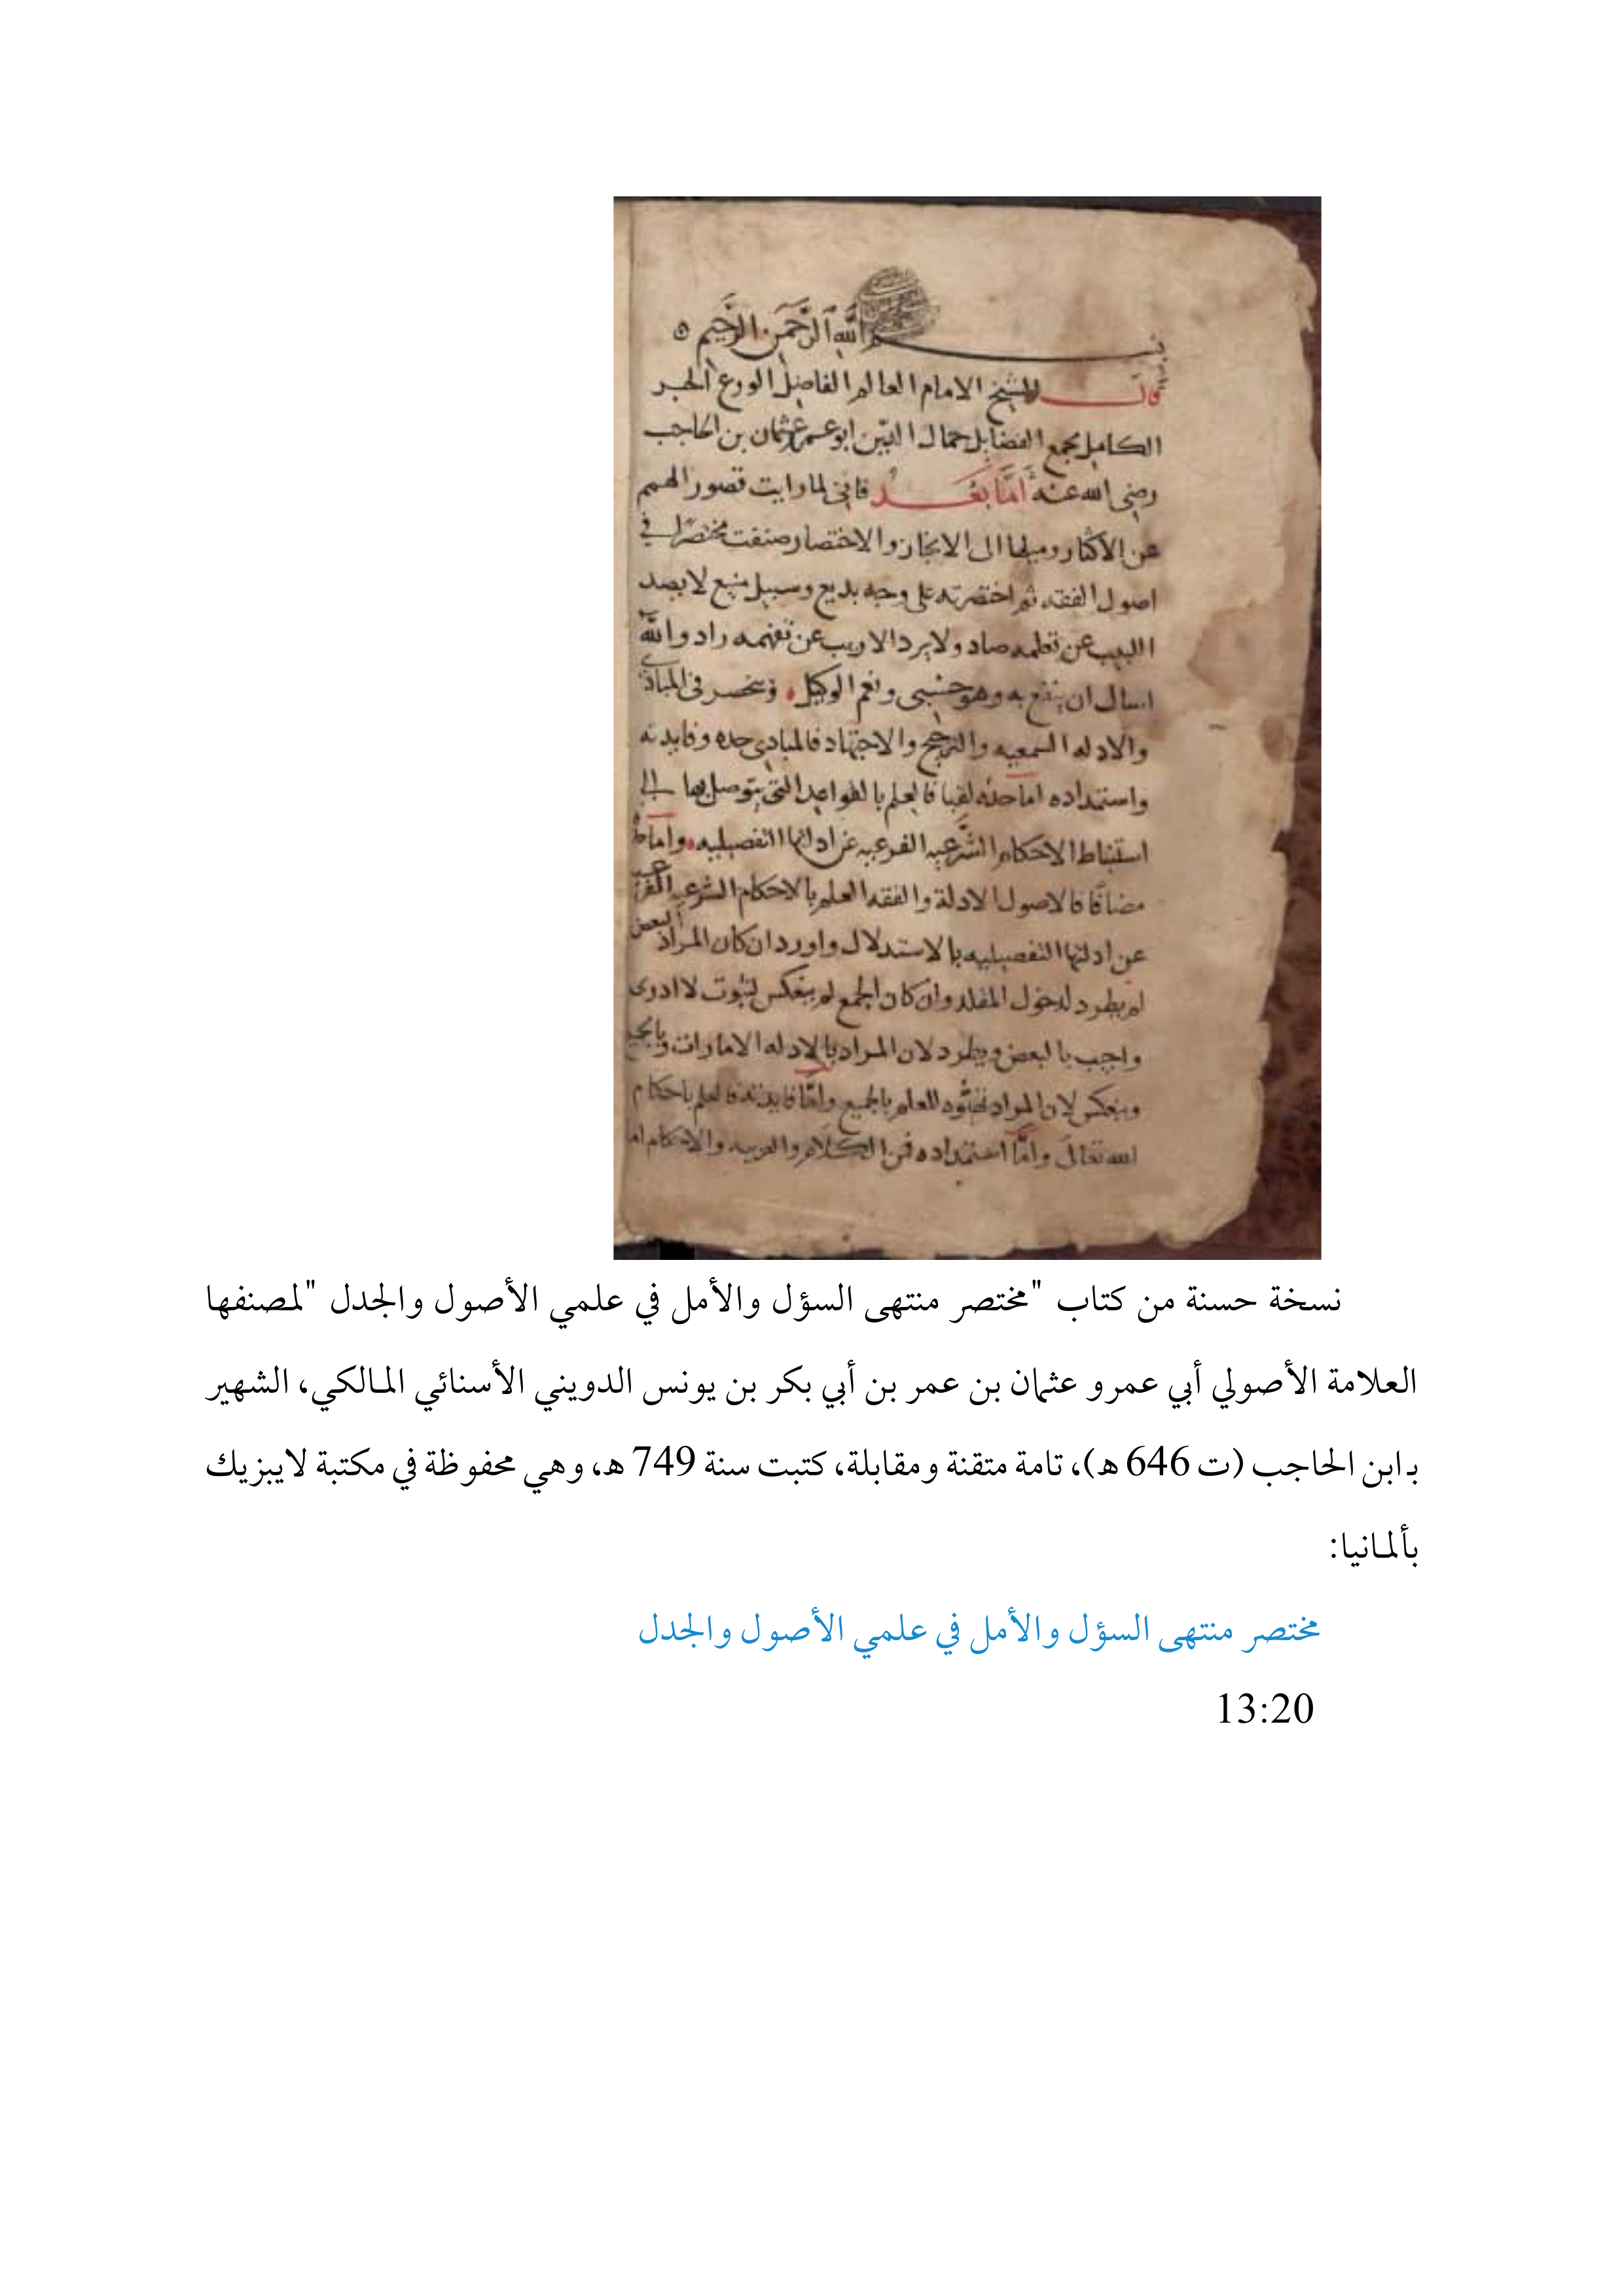 بسم الله الرحمن الرحيم ه
قال الشيخ الامام العالم الفاضل الورع الحبر
الكامل مجمع الفضايل جمال الدين ابو عمر عثمان بن الحاجب
رضى الله عنه اما بعد فانى لما رايت قصور الهمم
عن الاكثار وميلها الى الايجاز والاختصار صنفت مختصرا في
اصول الفقه ثم اختصرته على وجه بديع وسبيل منيع لا يصد
اللبيب عن تعلمه صاد ولا يرد الاريب عن تفهمه راد والله
اسال ان ينفع به وهو حسبى ونعم الوكيل وينحصر فى المبادى
والادله السمعيه والترجيح والاجتهاد فالمبادى حده وفايدته
واستمداده اما حده لقبا فالعلم بالقواعد التى يتوصل بها الى
استنباط الاحكام الشرعيه الفرعيه عن ادلتها التفصيليه واما
مضافا فالاصول الادلة والفقه العلم بالاحكام الشرعيه الفرعيه
عن ادلتها التفصيليه بالاستدلال واورد ان كان المراد البعض
لم يطرد لدخول المقلد وان كان الجميع لم ينعكس لثبوت لا ادرى
واجيب بالبعض ويطرد لان المراد بالادله الامارات وبالجميع
وينعكس لان المراد تهيوه للعلم بالجميع واما فايدته فالعلم باحكام
الله تعالى واما استمداده فمن الكلام والعربيه والاحكام اما
نسخة حسنة من كتاب "مختصر منتهى السؤل والأمل في علمي الأصول والجدل "لمصنفها
العلامة الأصولي أبي عمرو عثمان بن عمر بن أبي بكر بن يونس الدويني الأسنائي المالكي، الشهير
بـ ابن الحاجب (ت 646 هـ)، تامة متقنة ومقابلة، كتبت سنة 749 هـ، وهي محفوظة في مكتبة لايبزيك
بألمانيا:
مختصر منتهى السؤل والأمل في علمي الأصول والجدل
13:20